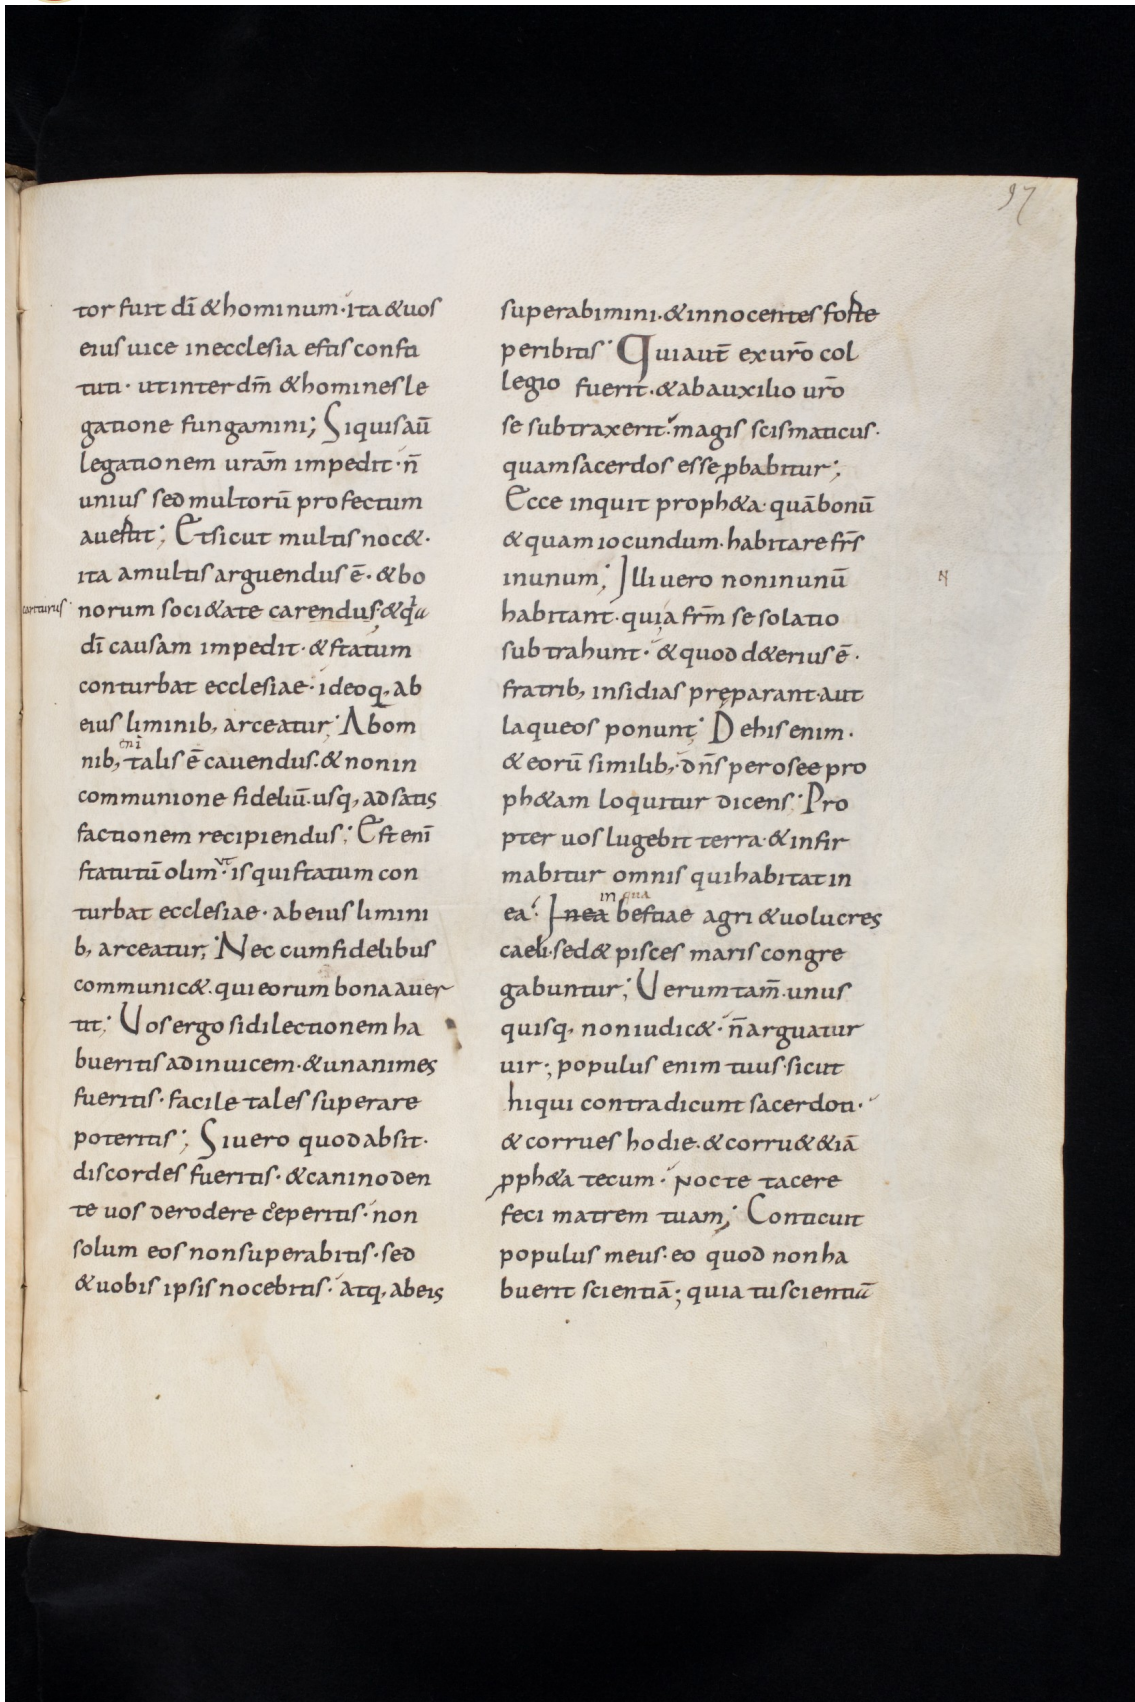 97
tor fuit dī & hominum· ita & uos
eius uice inecclesia estis consti
tuti· ut inter dm̄ & homines le
gatione fungamini; Siquis aū
legationem uram̄ impedit· n̄
unius sed multorū profectum
auertit; Et sicut multis noc&·
ita amultis arguendus ē· & bo
cariturus
norum soci&ate carendus· & q̇a
dī causam impedit· & statum
conturbat ecclesiae· ideoq, ab
eius liminib, arceatur; Ab om
eni
nib, talis ē cauendus· & non in
communione fideliū· usq, ad satis
factionem recipiendus; Est enī
ut
statutū olim· is qui statum con
turbat ecclesiae· ab eius limini
b, arceatur; Nec cum fidelibus
communic&· qui eorum bona auer
tit; Uos ergo si dilectionem ha
bueritis ad inuicem· & unanimes
fueritis· facile tales superare
poteritis; Si uero quod absit·
discordes fueritis· & canino den
te uos derodere cęperitis· non
solum eos non superabitis· sed
& uobis ipsis nocebitis· atq, ab eis
superabimini· & innocentes forte
peribitis; Qui aut̄ ex uro̅ col
legio fuerit· & ab auxilio uro̅
se subtraxerit· magis scismaticus·
quam sacerdos esse ꝓbabitur;
Ecce inquit proph&a· quā bonū
& quam iocundum· habitare frs̄
in unum; Illi uero non in unū
N
habitant· quia frm̄ se solatio
subtrahunt· & quod d&erius ē·
fratrib, insidias pręparant· aut
laqueos ponunt; De his enim·
& eorū similib,· dn̄s per osee pro
ph&am loquitur dicens; Pro
pter uos lugebit terra· & infir
mabitur omnis qui habitat in
in qua
ea· In ea bestiae agri & uolucres
caeli· sed & pisces maris congre
gabuntur; Uerum tam̄· unus
quisq, non iudic&· n̄ arguatur
uir·; populus enim tuus· sicut
hi qui contradicunt sacerdoti·
& corrues hodie· & corru& & iā
ꝓph&a tecum· Nocte tacere
feci matrem tuam; Conticuit
populus meus· eo quod non ha
buerit scientiā; quia tu scientiā